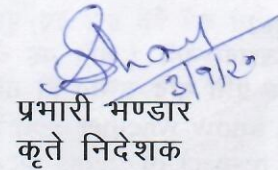 3/9/20
प्रभारी भण्डार
कृते निदेशक